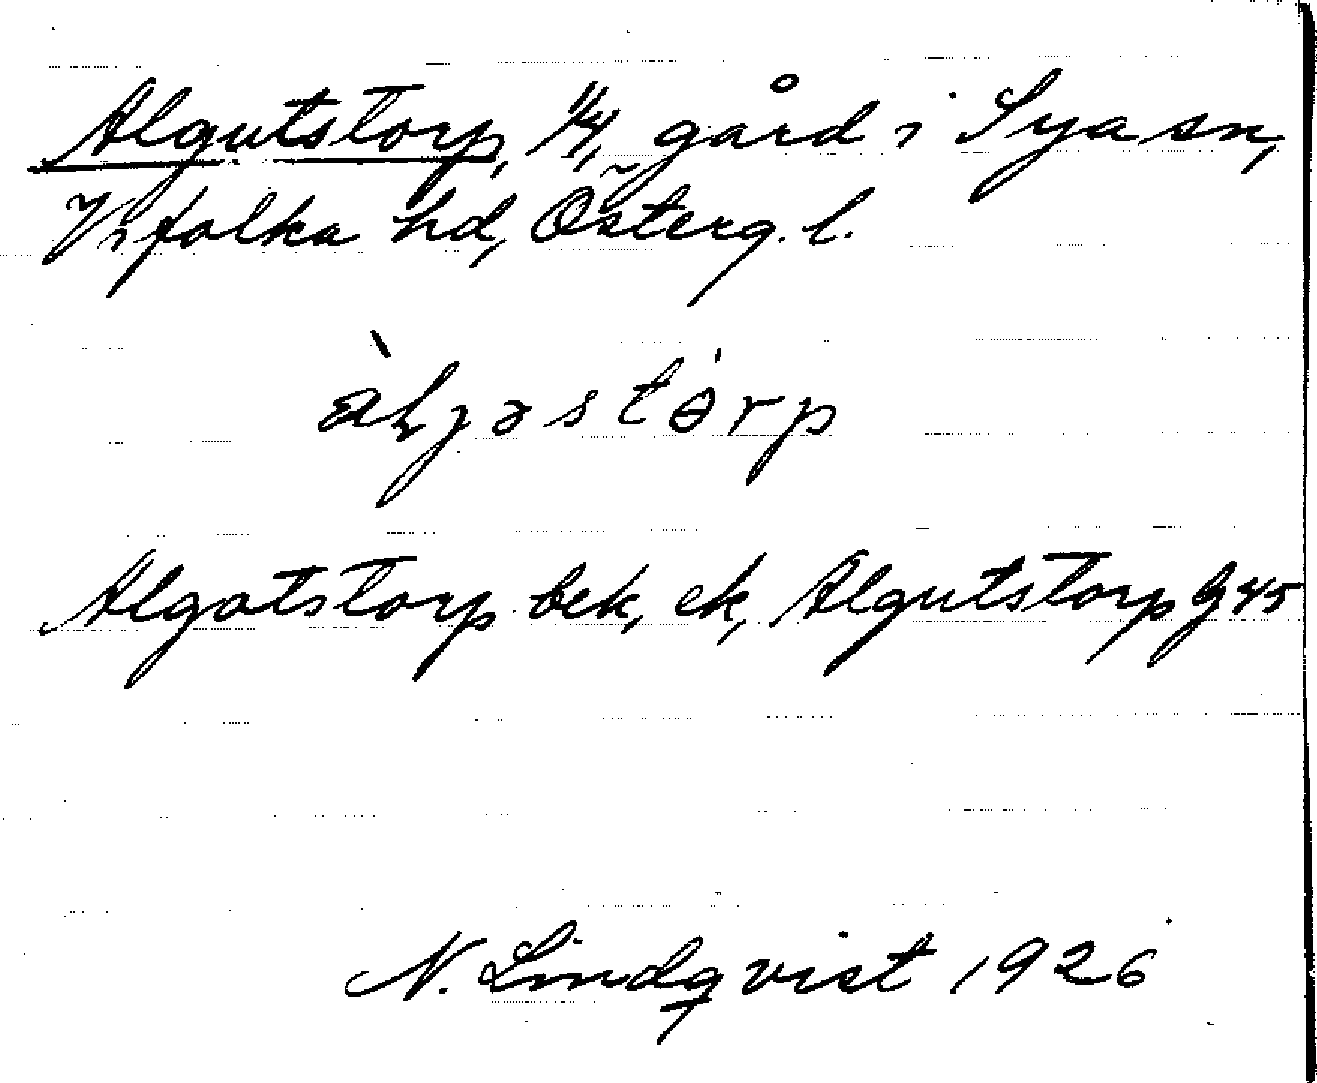 Algutstorp, 1/4, gård i Sya sn,
Vifolka hd, Österg. l.
àljəstórp
Algotstorp bek, ek, Algutstorp G 45
N. Lindqvist 1926